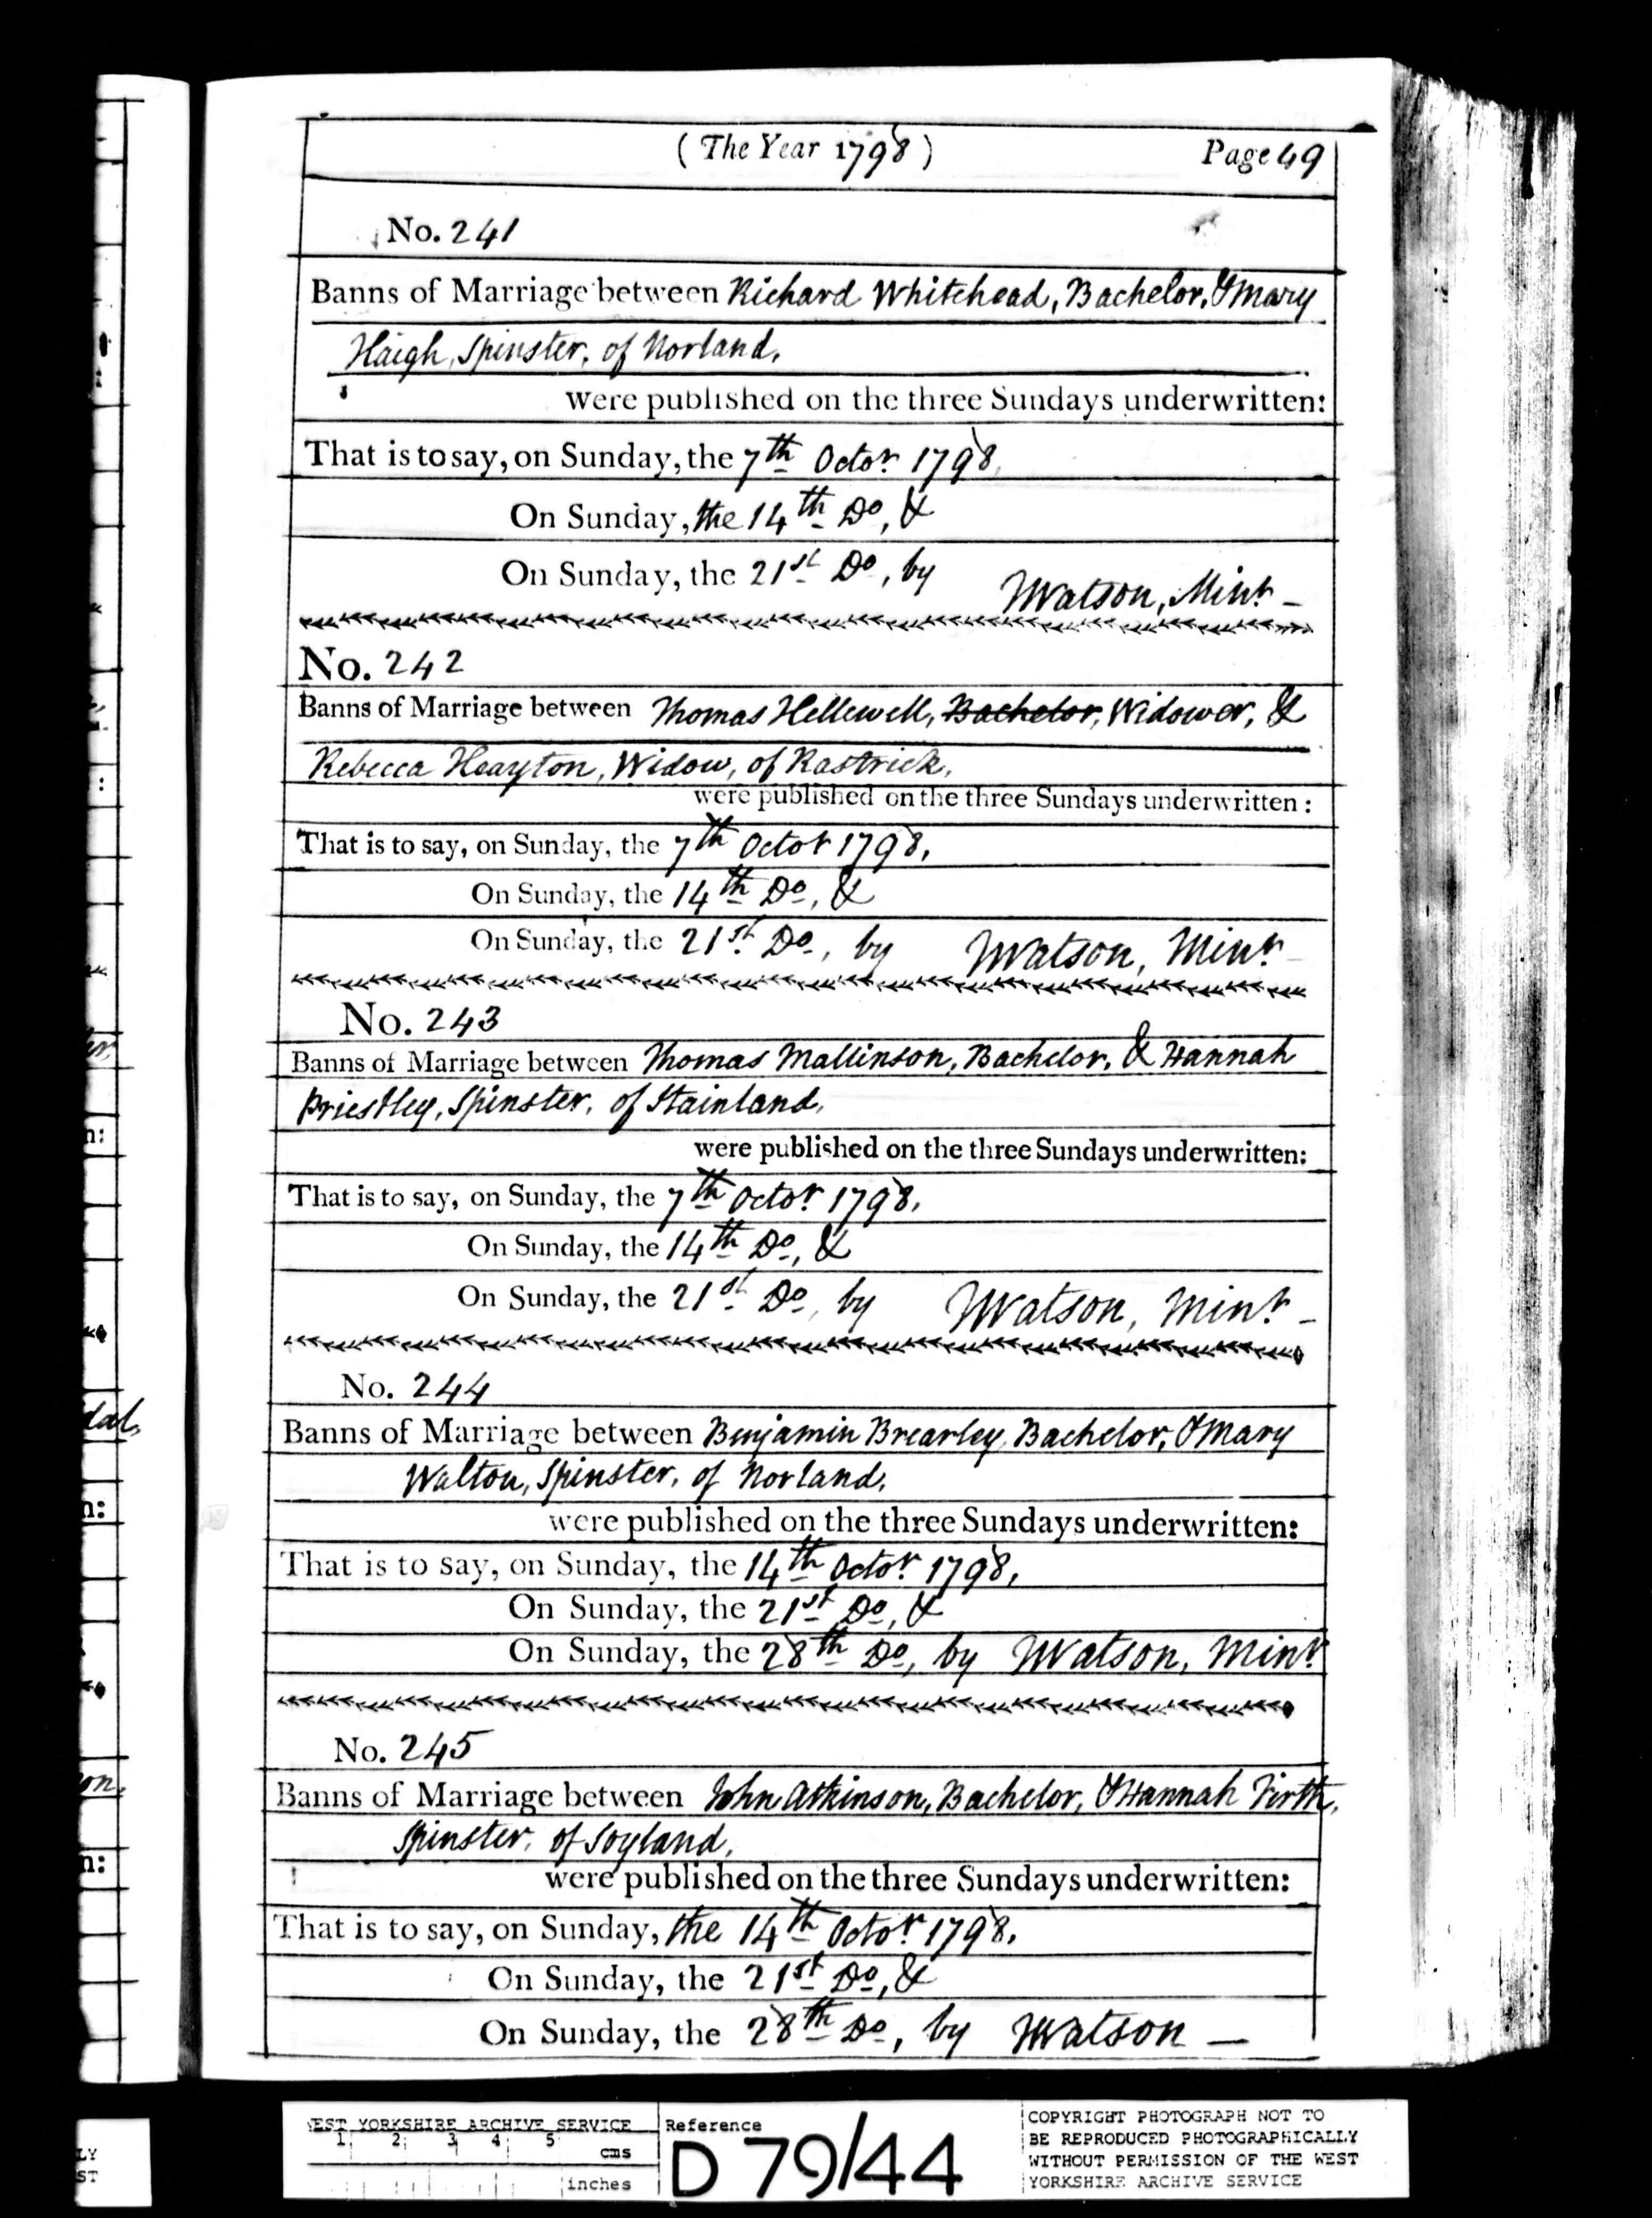 ( The Year 1798 ) Page 49
No. 241
Banns of Marriage between Richard Whitehead, Bachelor, & Mary
Haigh, Spinster, of Norland,
were published on the three Sundays underwritten:
That is to say, on Sunday, the 7th Octor. 1798,
On Sunday, the 14th Do, &
On Sunday, the 21st Do, by
Watson, Minr.
No. 242
Banns of Marriage between Thomas Hellewell, Bachelor, Widower, &
Rebecca Heayton, Widow, of Rastrick,
were published on the three Sundays underwritten:
That is to say, on Sunday, the 7th Octor 1798,
On Sunday, the 14th Do, &
On Sunday, the 21st Do, by Watson, Minr.
No. 243
Banns of Marriage between Thomas Mallinson, Bachelor, & Hannah
Priestley, Spinster, of Stainland,
were published on the three Sundays underwritten:
That is to say, on Sunday, the 7th Octor. 1798,
On Sunday, the 14th Do, &
On Sunday, the 21st Do, by Watson, Minr.
No. 244
Banns of Marriage between Benjamin Brearley, Bachelor, & Mary
Walton, Spinster, of Norland,
were published on the three Sundays underwritten:
That is to say, on Sunday, the 14th Octor. 1798,
On Sunday, the 21st Do, &
On Sunday, the 28th Do, by Watson, Minr.
No. 245
Banns of Marriage between John Atkinson, Bachelor, & Hannah Firth,
Spinster, of Soyland,
were published on the three Sundays underwritten:
That is to say, on Sunday, the 14th Octor. 1798,
On Sunday, the 21st Do, &
On Sunday, the 28th Do, by Watson
WEST YORKSHIRE ARCHIVE SERVICE
1 2 3 4 5
cms
inches
Reference
D 79/44
COPYRIGHT PHOTOGRAPH NOT TO
BE REPRODUCED PHOTOGRAPHICALLY
WITHOUT PERMISSION OF THE WEST
YORKSHIRE ARCHIVE SERVICE